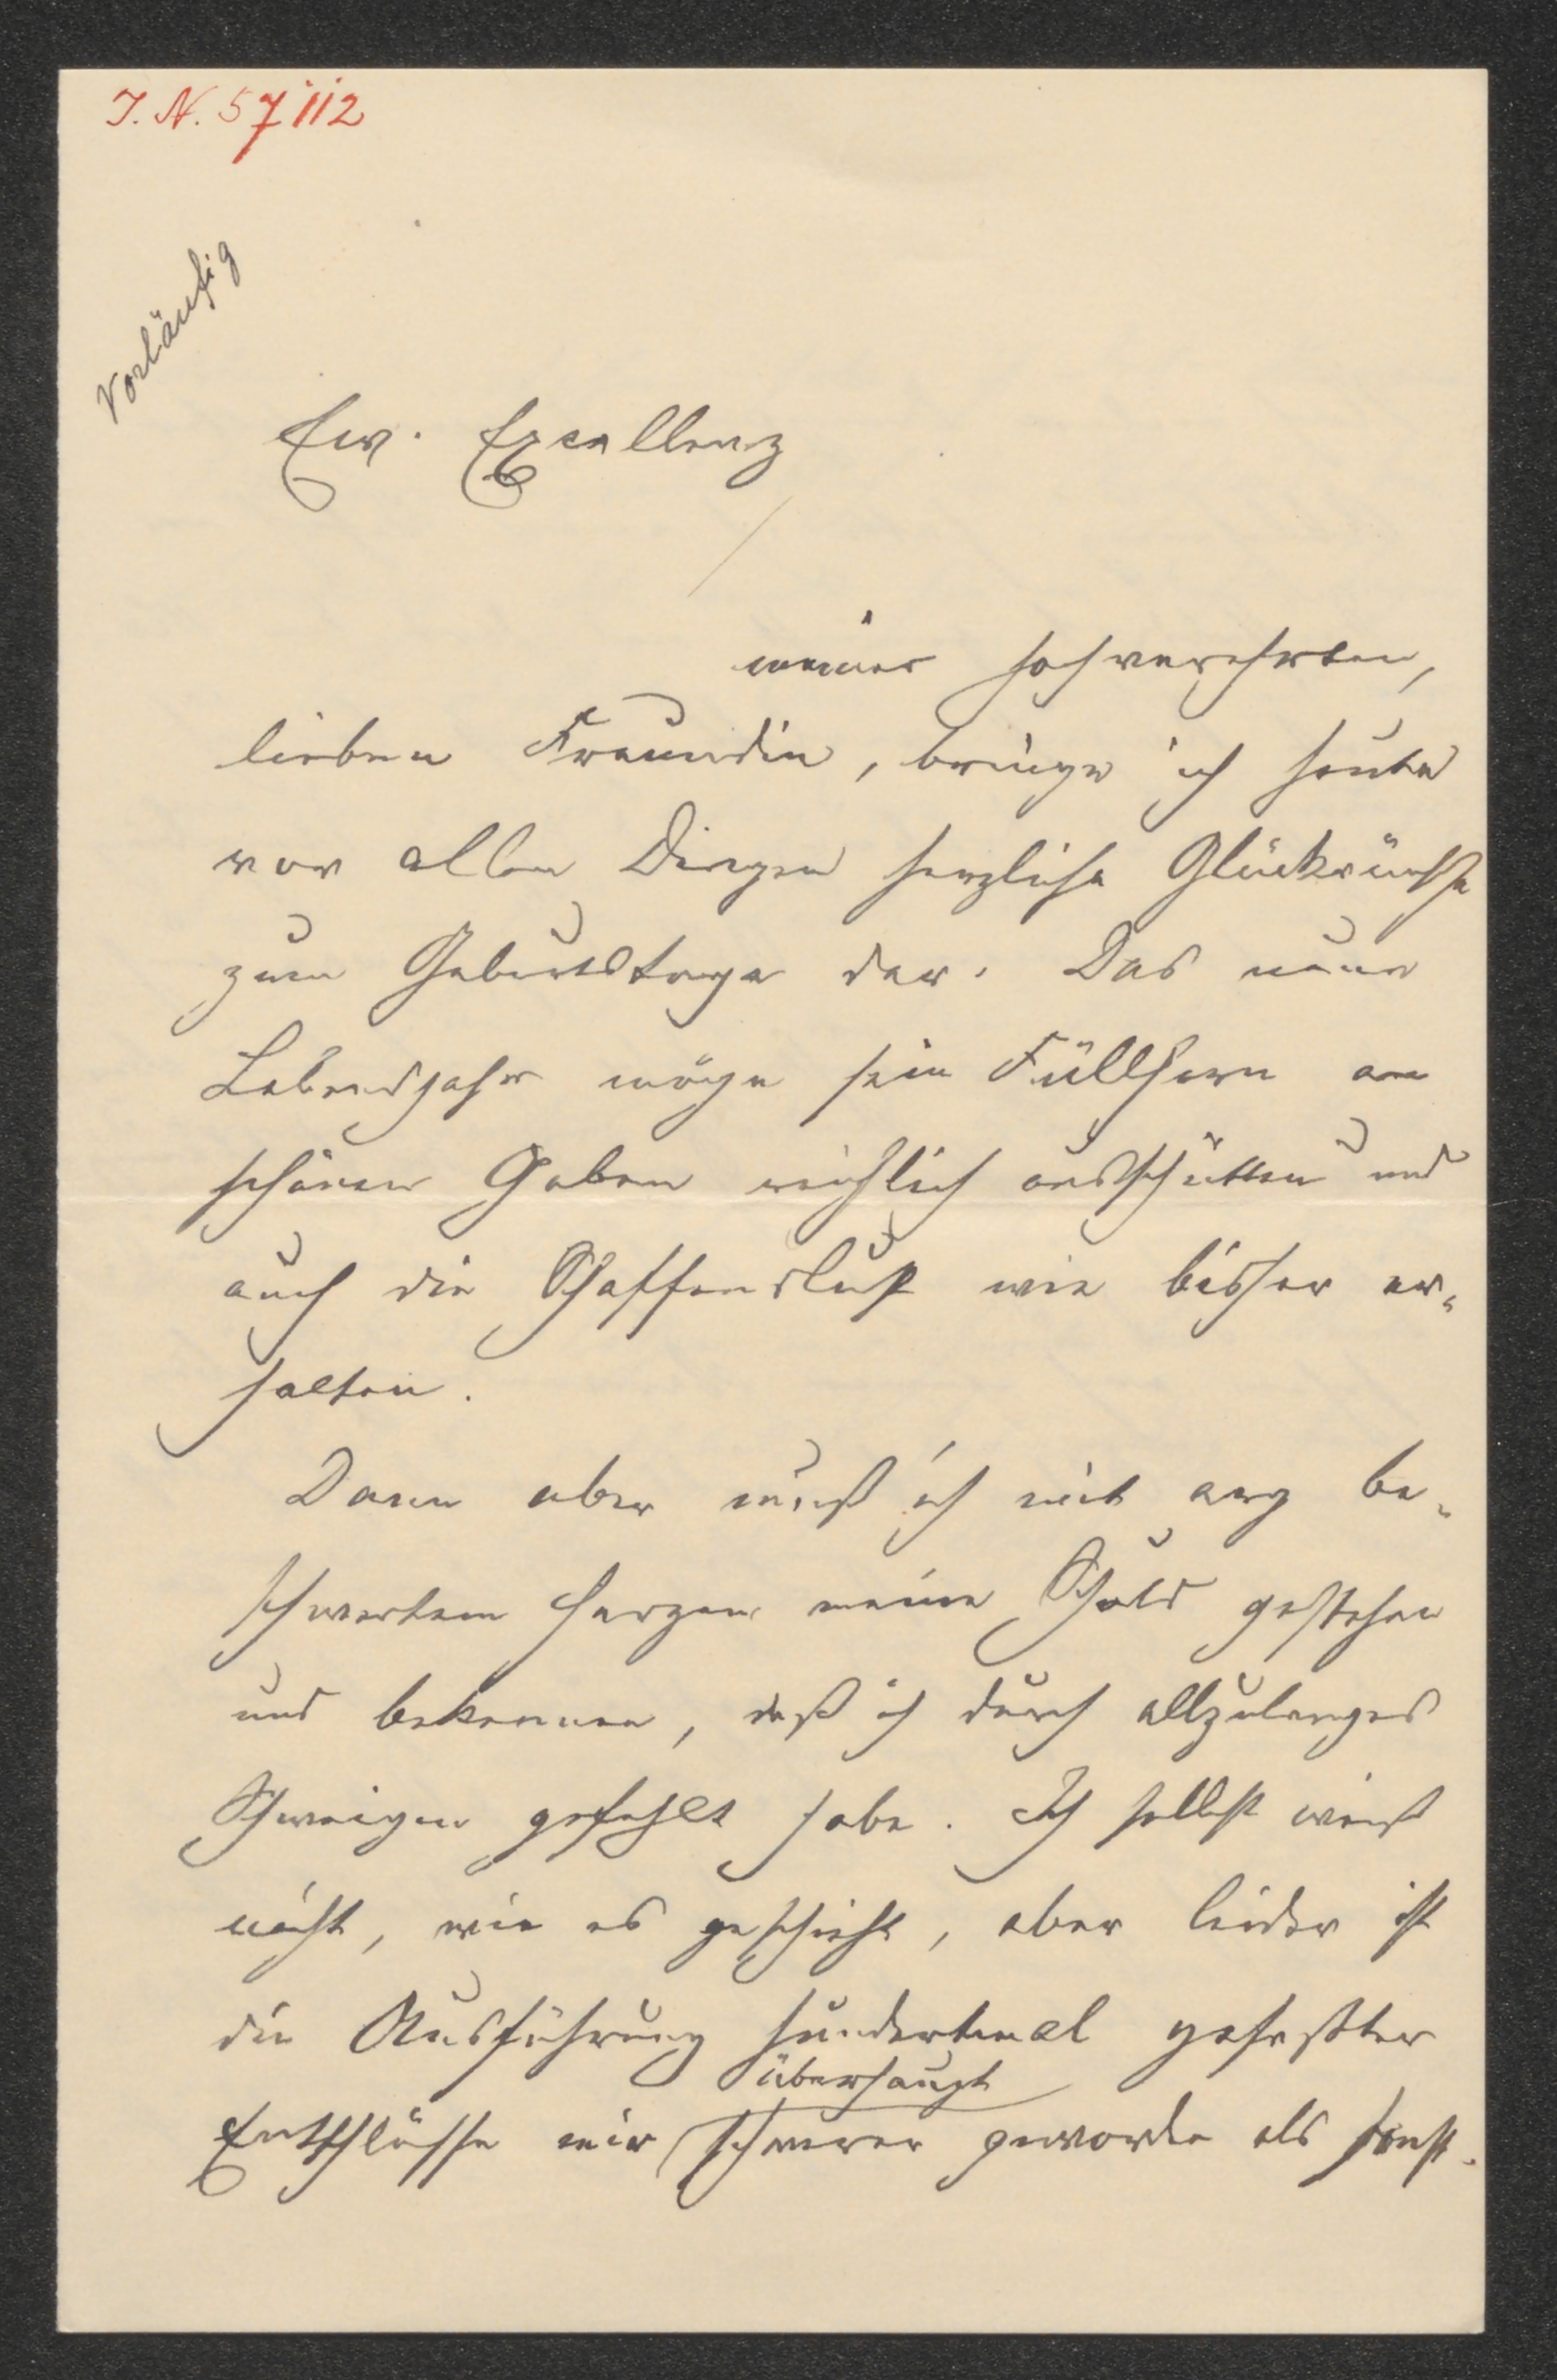 J. N. 57112
Vorläufig
Ew. Excellenz
meiner hochverehrten,
lieben Freundin, bringe ich heute
vor allen Dingen herzliche Glückwünsche
zum Geburtstage dar. Das neue
Lebensjahr möge sein Füllhorn an
schönen Gaben reichlich ausschütten und
auch die Schaffenslust wie bisher er-
halten.
Dann aber muß ich mit arg be-
schwertem Herzen meine Schuld gestehen
und bekennen, daß ich durch allzulanges
Schweigen gefehlt habe. Ich selbst weiß
nicht, wie es geschieht, aber leider ist
die Ausführung hundertmal gefaßter
überhaupt
Entschlüsse mir schwerer geworden als sonst.